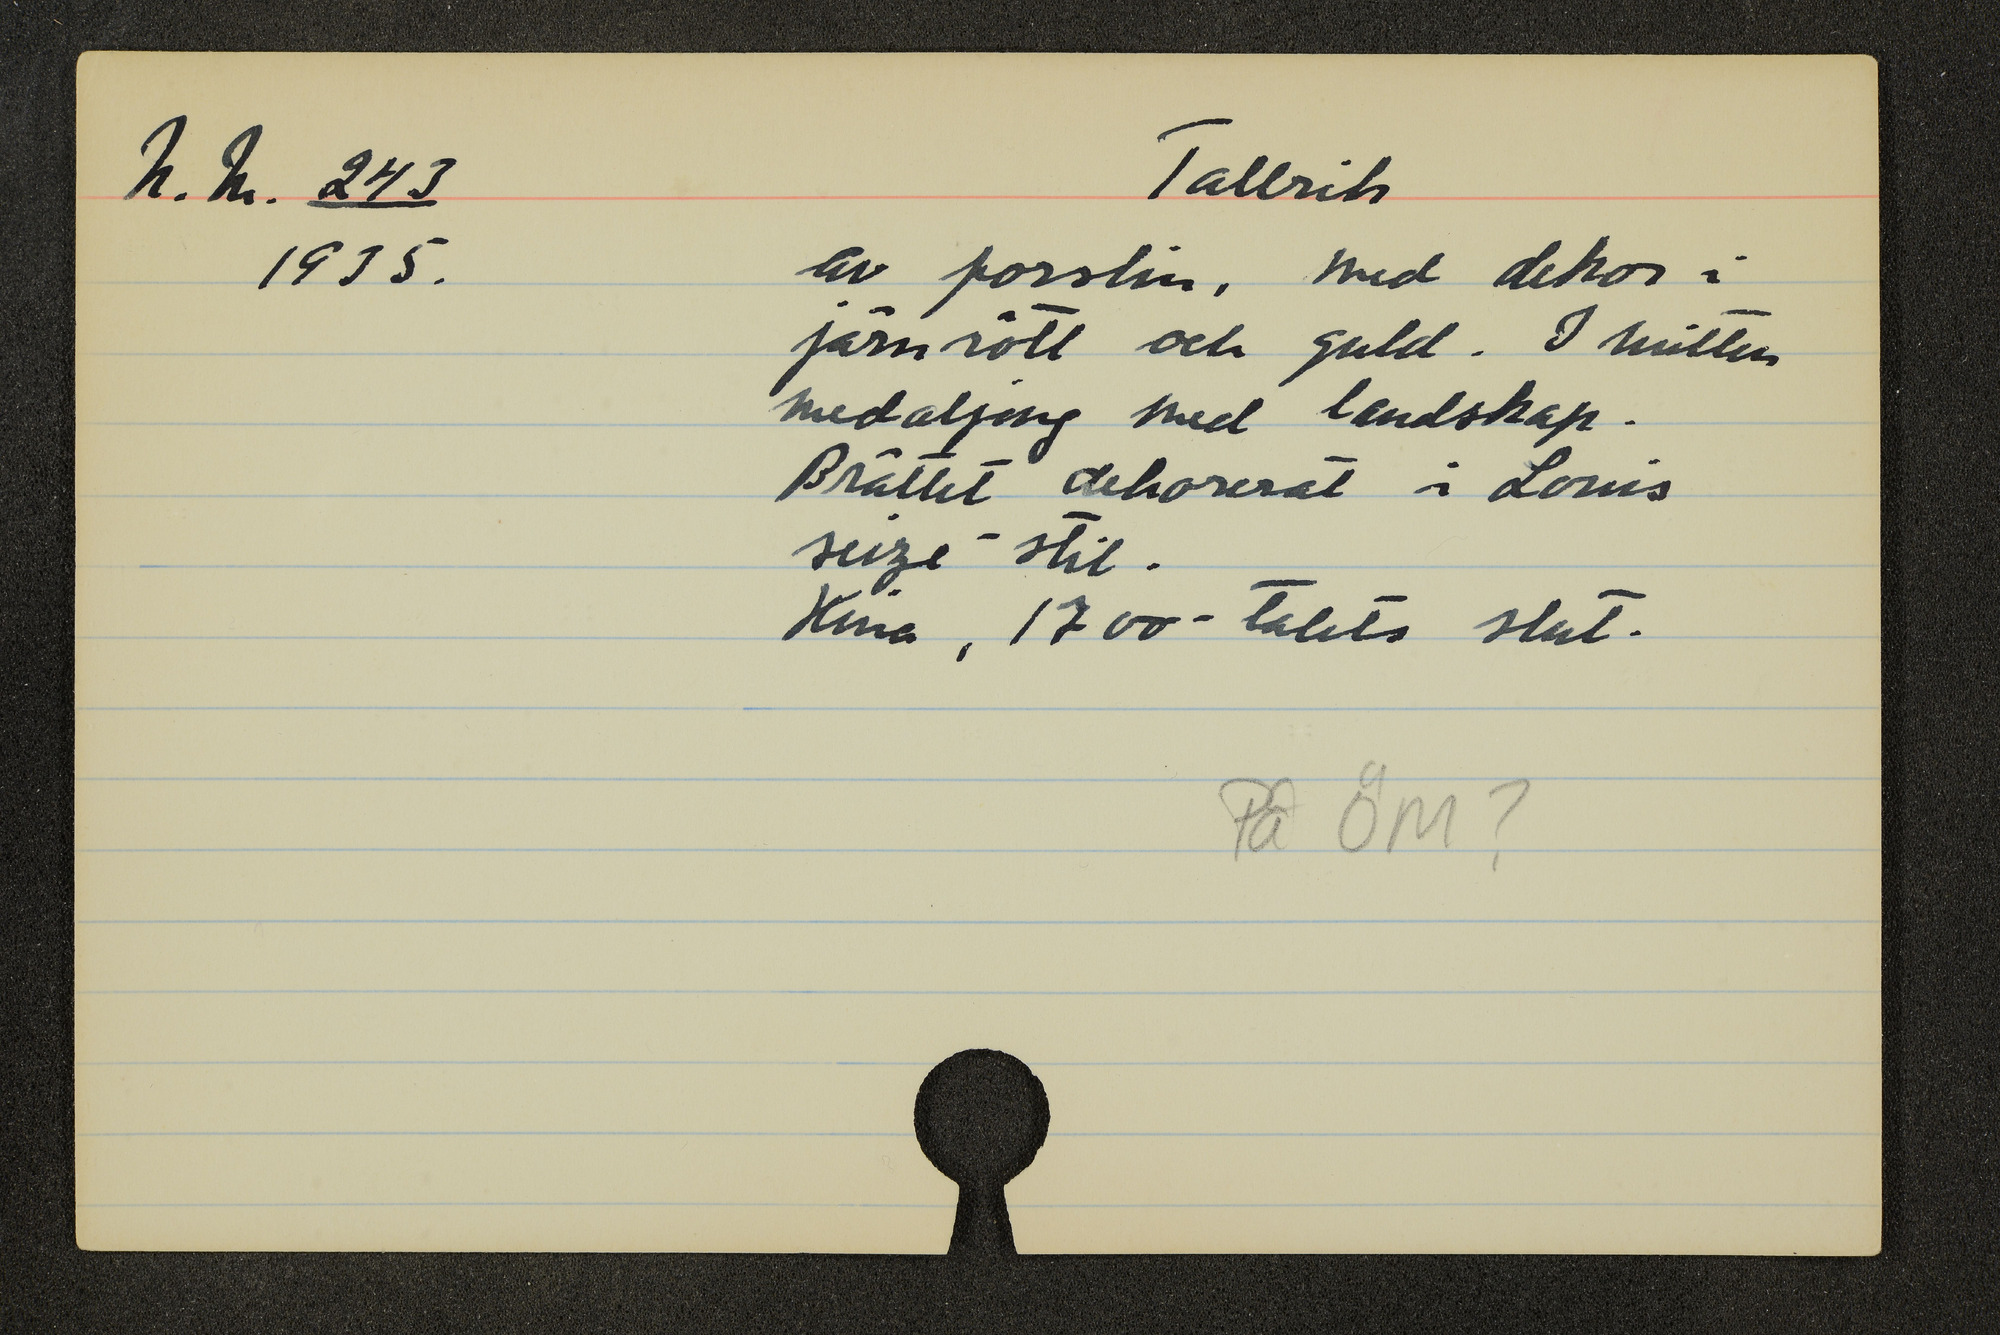 N. M. 243
1935.
Tallrik
av porslin, med dekor i
järnrött och guld. I mitten
medaljong med landskap.
Brättet dekorerat i Louis
seize-stil.
Kina, 1700-talets slut.
På ÖM?